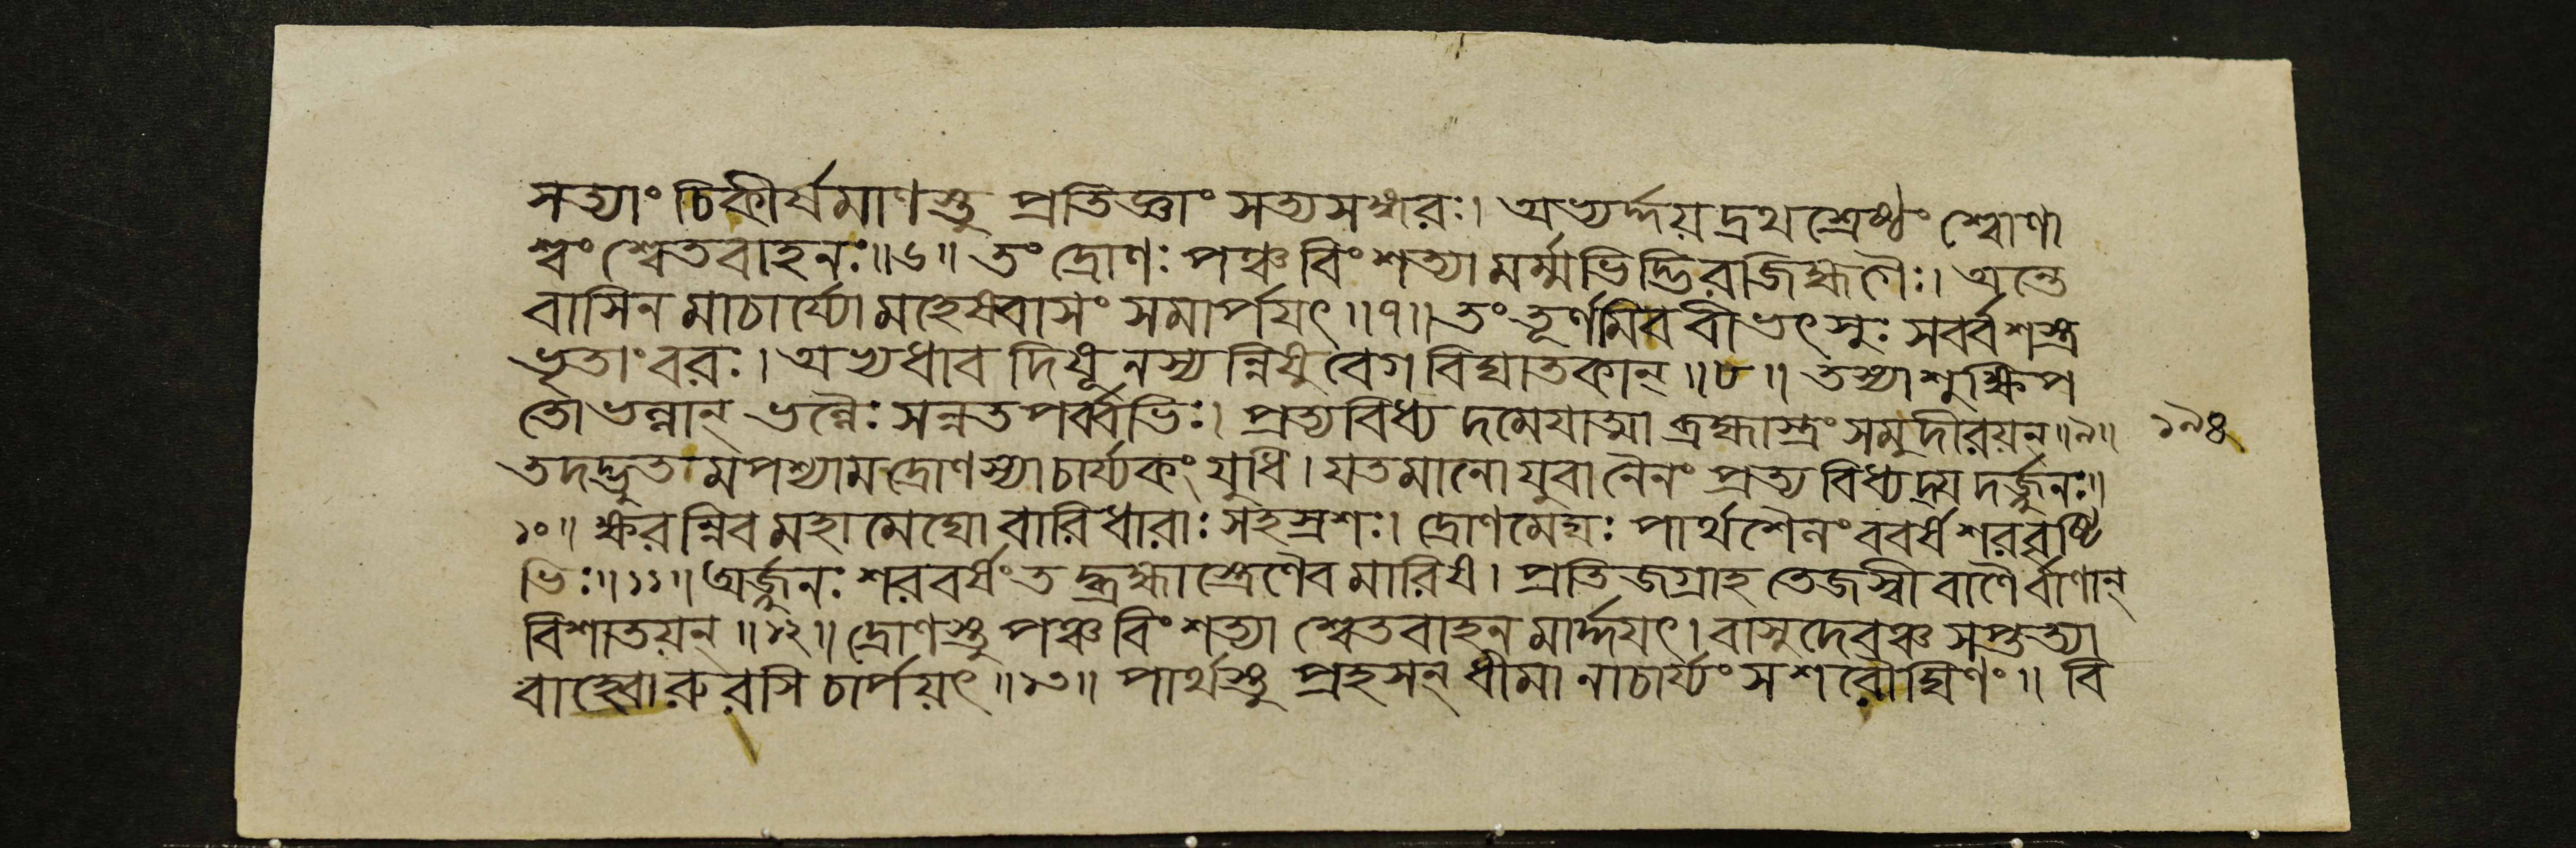 সত্যাং চিকীর্ষমাণস্তু প্রতিজ্ঞাং সত্যসঙ্গরঃ। অভ্যর্দ্দয়দ্রথশ্রেষ্ঠং শোণা
শ্বং শ্বেতবাহনঃ॥৬॥ তং দ্রোণঃ পঞ্চবিংশত্যা মর্ম্মভিদ্ভিরজিহ্মগৈঃ। অন্তে
বাসিনমাচার্য্যো মহেষ্বাসং সমার্পয়ৎ॥৭॥ তং তূর্ণমিব বীভৎসুঃ সর্ব্বশস্ত্র
ভৃতাং বরঃ। অভ্যধাবদিষূনস্যন্নিষুবেগবিঘাতকান্॥৮॥ তস্যাশুক্ষিপ
তো ভল্লান্ ভল্লৈঃ সন্নতপর্ব্বভিঃ। প্রত্যবিধ্যদমেয়াত্মা ব্রহ্মাস্ত্রং সমুদীরয়ন্॥৯॥ ১৯৪
তদদ্ভুতমপশ্যাম দ্রোণস্যাচার্য্যকং যুধি। যতমানো যুবা নৈনং প্রত্যবিধ্যদ্যদর্জ্জুনঃ॥
১০॥ ক্ষরন্নিব মহামেঘো বারিধারাঃ সহস্রশঃ। দ্রোণমেঘঃ পার্থশৈনং ববর্ষ শরবৃষ্টি
ভিঃ॥১১॥ অর্জ্জুনঃ শরবর্ষং তদ্ব্রহ্মাস্ত্রেণৈব মারিষ। প্রতিজগ্রাহ তেজস্বী বাণৈর্বাণান্
বিশাতয়ন্॥১২॥ দ্রোণস্তু পঞ্চবিংশত্যা শ্বেতবাহনমার্দ্দয়ৎ। বাসুদেবঞ্চ সপ্তত্যা
বাহ্বোরুরসি চার্পয়ৎ॥১৩॥ পার্থস্তু প্রহসন্ ধীমানাচার্য্যং সশরৌঘিণং॥ বি